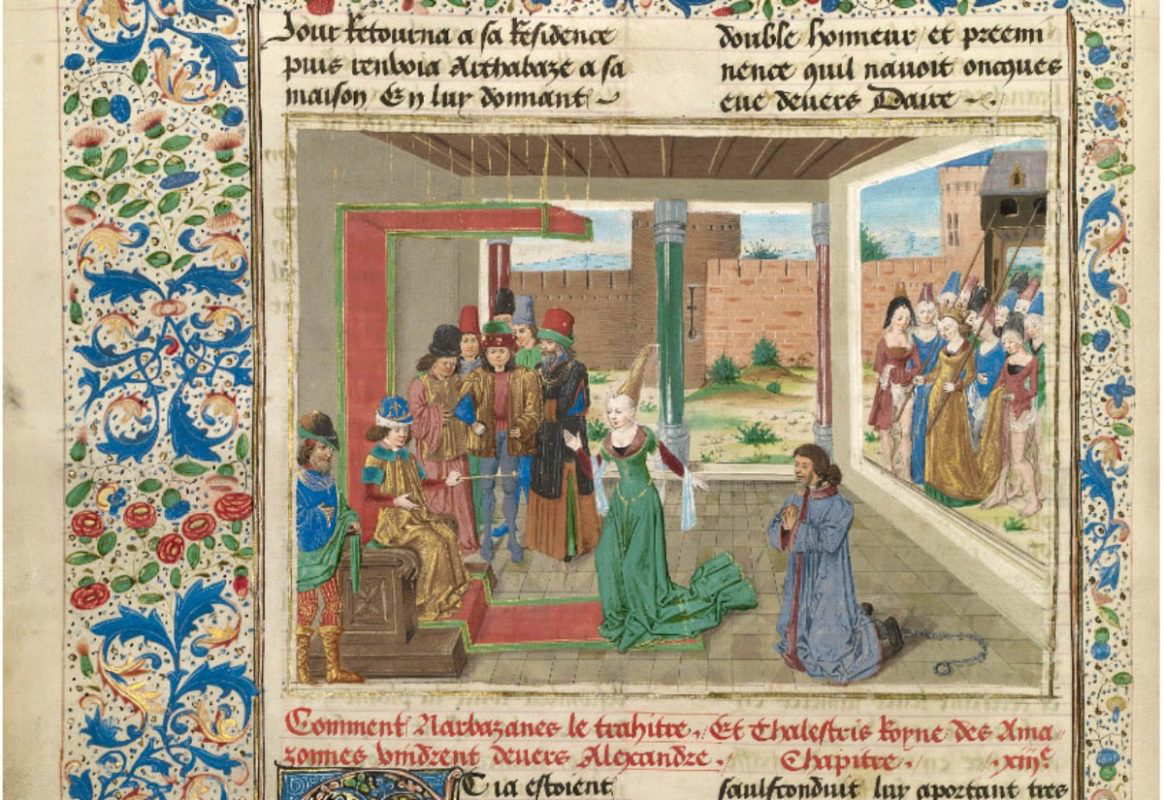 Jour retourna a sa residence
puis renvoia Arthabaze a sa
maison En luy donnant
double honneur et preemi
nence quil nauoit oncques
eue deuers Daire .
Comment Narbazanes le trahitre . Et Thalestris Royne des Ama
zonnes vindrent deuers Alexandre . Chapitre . xiiiᵉ
Cia estoient
saulfconduit luy aportant tres